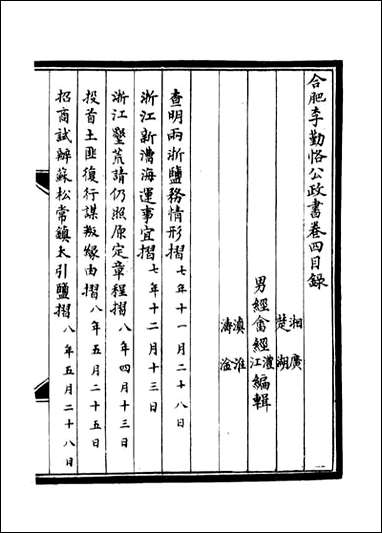 合肥李勤恪公政書卷四目錄
湘廣
楚湖
男經畬經澧江編輯
滇淮
濤淦
查明兩浙鹽務情形摺七年十一月二十八日
浙江新漕海運事宜摺七年十二月十三日
浙江墾荒請仍照原定章程摺八年四月十三日
投首土匪復行謀叛緣由摺八年五月二十五日
招商試辦蘇松常鎮太引鹽摺八年五月二十八日
一